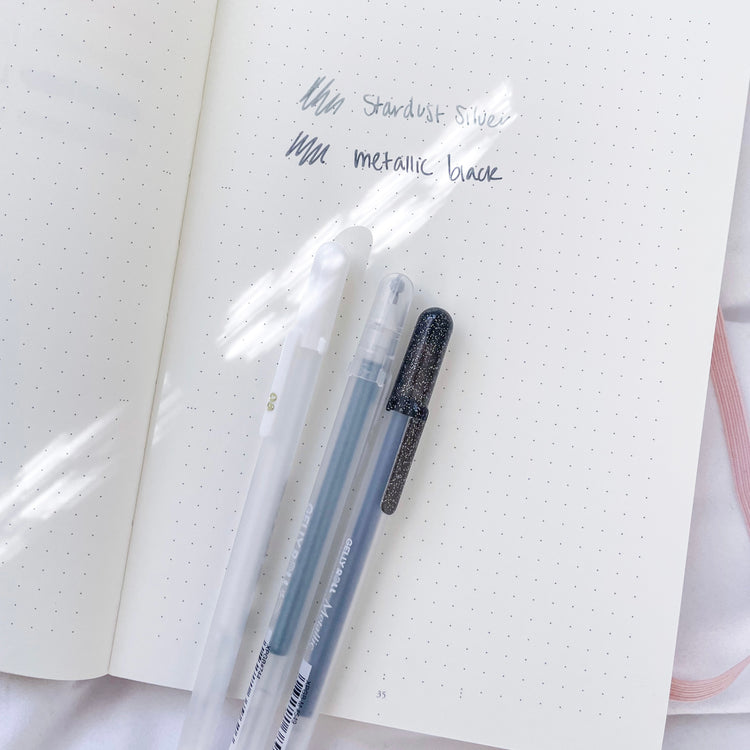 Stardust Silver
metallic black
08
GELLY ROLL
GELLY ROLL Metallic
35